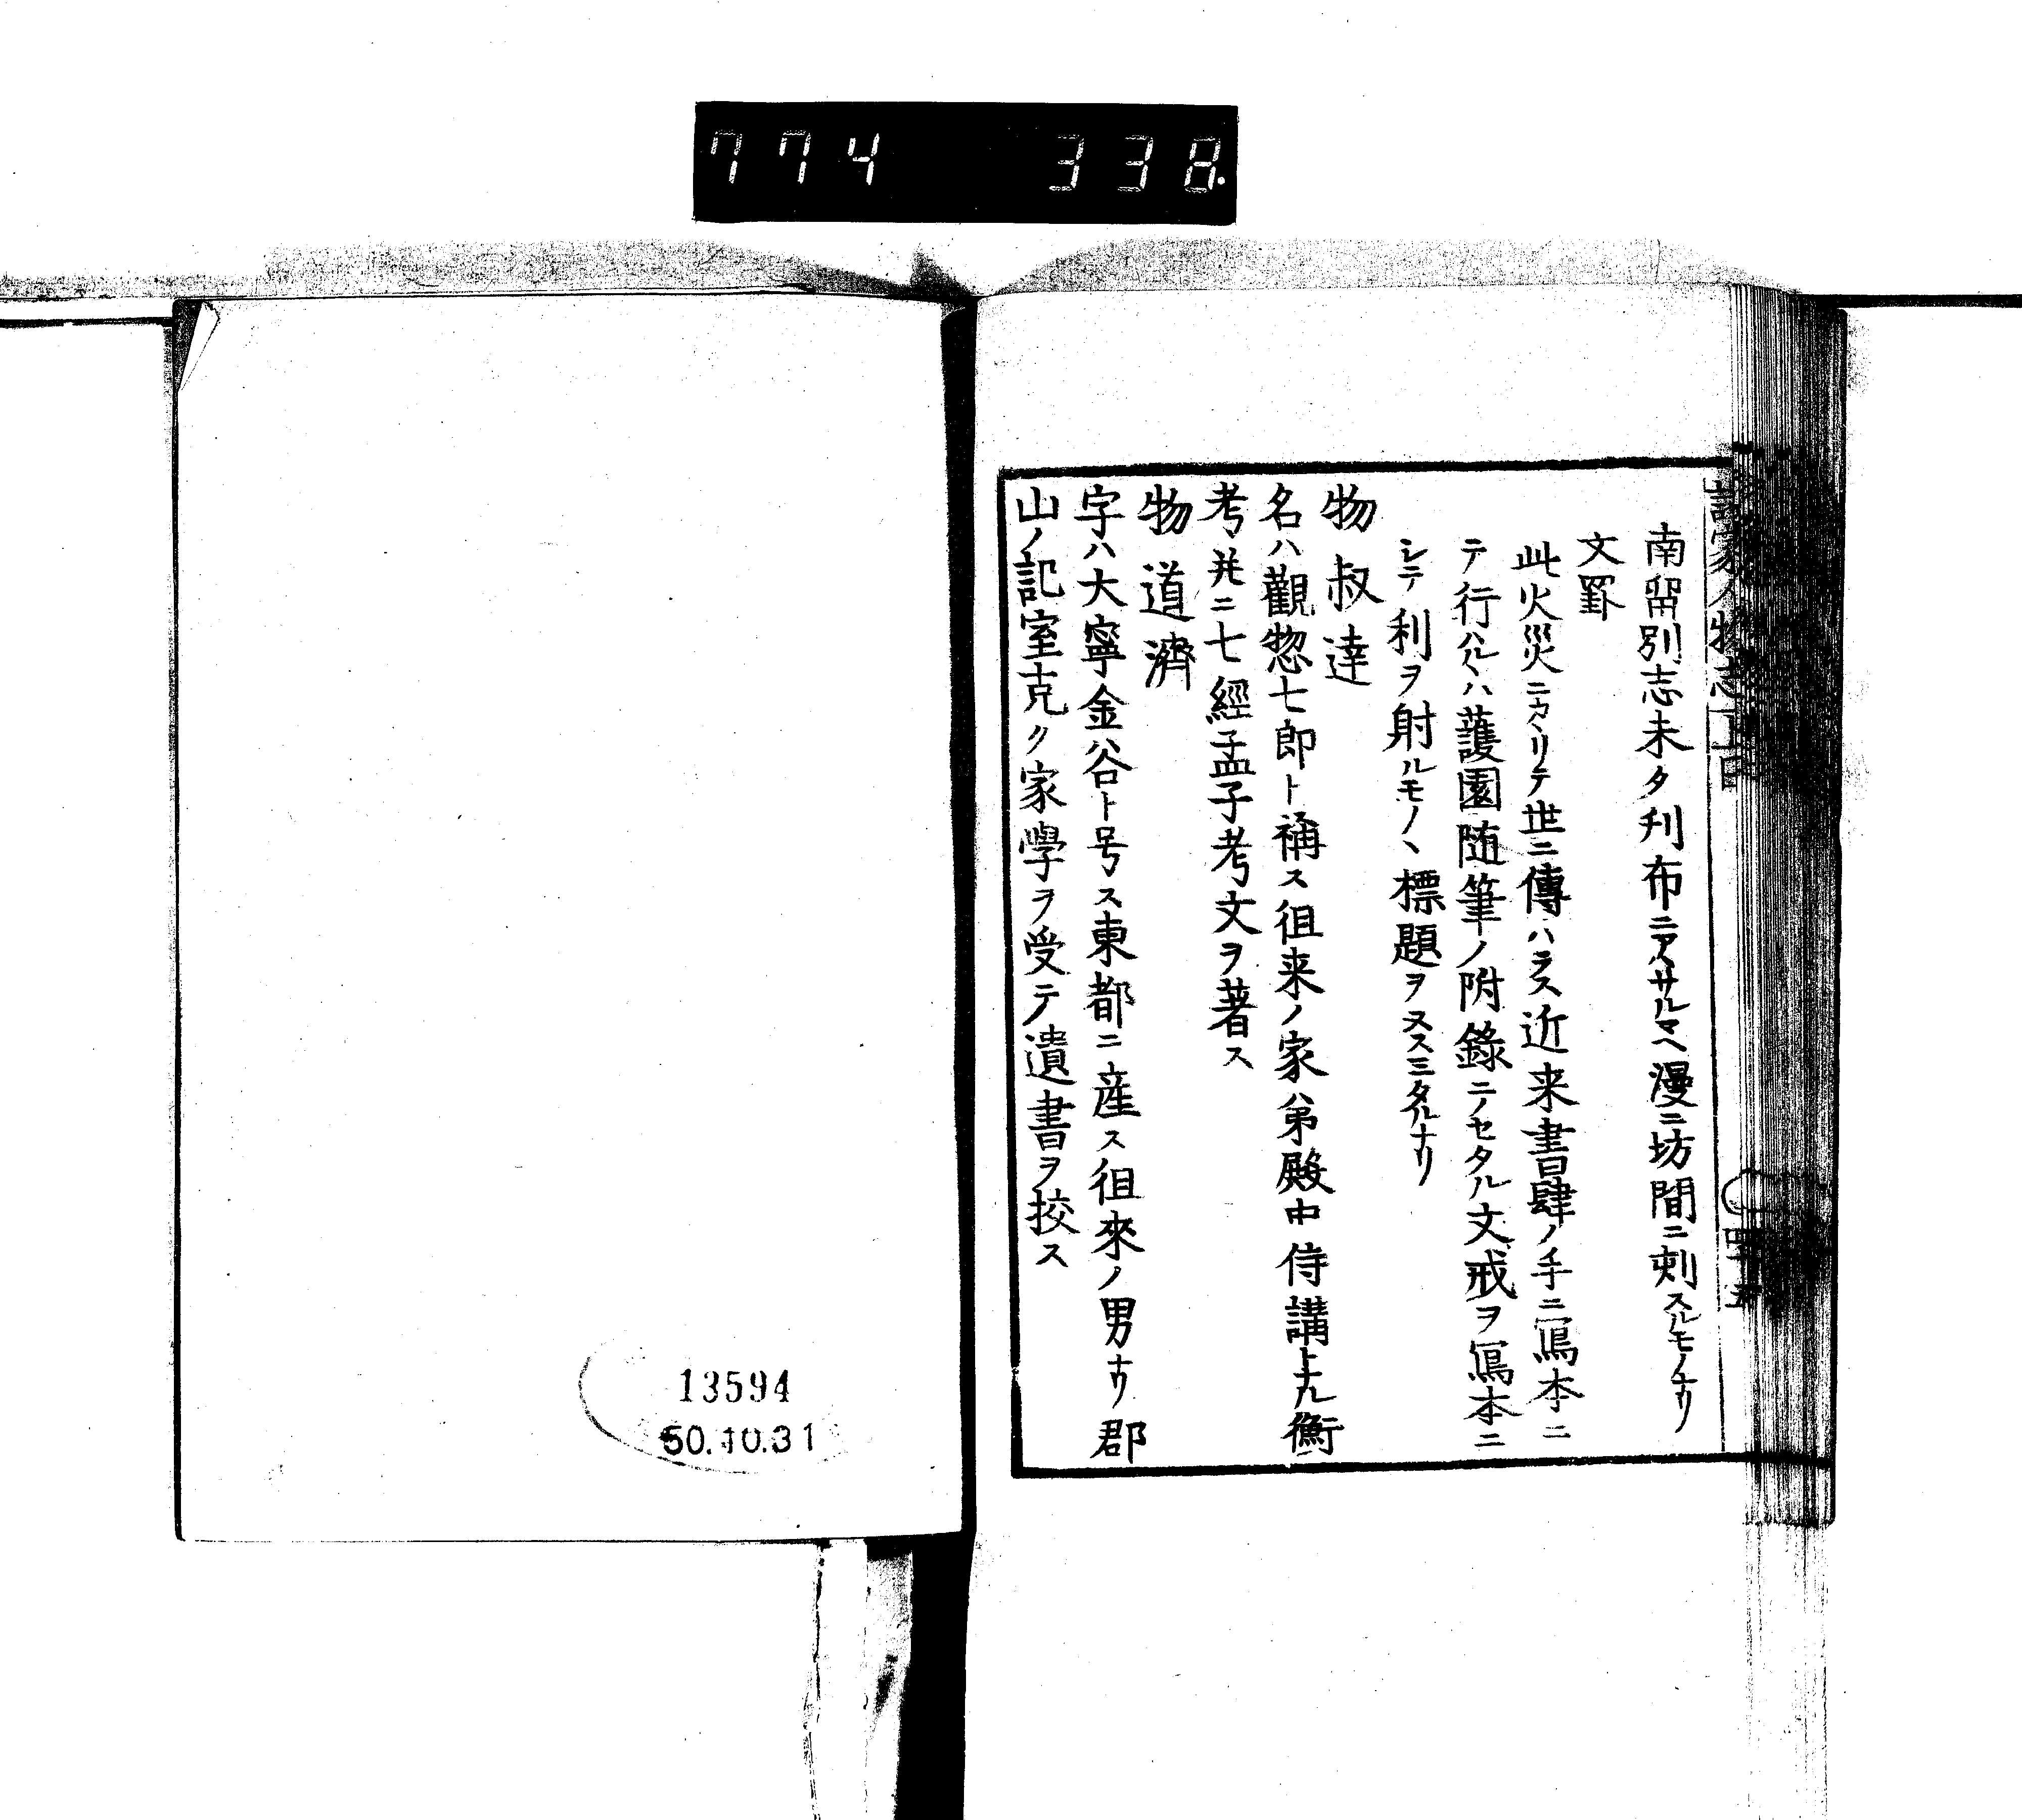 774 338.
南留別志未タ刋布ニアラサルマヘ漫ニ坊間ニ刺スルモノナリ
文罫
此火災ニカヽリテ世ニ傳ハラス近来書肆ノ手ニ寫本ニ
テ行ハルヽハ蘐園随筆ノ附錄ニノセタル文戒ヲ寫本ニ
シテ利ヲ射ルモノヽ標題ヲヌスミタルナリ
物叔達
名ハ觀惣七郎ト稱ス徂来ノ家ハ弟殿中侍講トナル
考幷ニ七經孟子考文ヲ著ス
物道濟
字ハ大寧金谷ト号ス東都ニ産ス徂來ノ男ナリ郡
山ノ記室克ク家學ヲ受テ遺書ヲ挍ス
13594
50.10.31